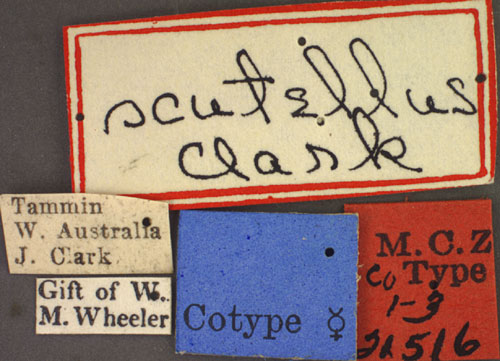 scutellus
Clark
Tammin
W. Australia
J. Clark
Gift of W.
M. Wheeler
Cotype ☿
M.C.Z
Co Type
1-3
21516